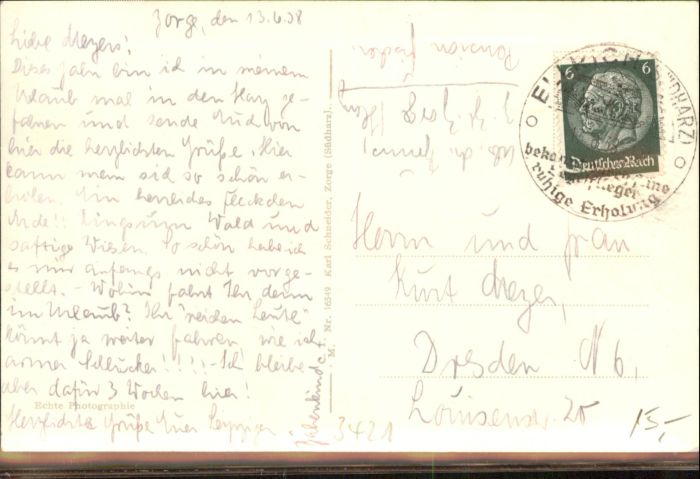 Zorge, den 13.6.38
Liebe Meyers!
Dieses Jahr bin ich in meinem
Urlaub mal in den Harz ge-
fahren und sende Euch von
hier die herzlichsten Grüße. Hier
kann man sich so schön er-
holen. Ein herrliches Fleckchen
Erde!! Ringsum Wald und
saftige Wiesen. So schön habe ich
es mir anfangs nicht vorge-
stellt. - Wohin fahrt Ihr denn
im Urlaub? Ihr "reichen Leute"
könnt ja weiter fahren wie ich
armer Schlucker!!!!- Ich bleibe
aber dafür 3 Wochen hier!
Herzlichste Grüße Euer
Echte Photographie
M Nr. 16349 Karl Schneider, Zorge (Südharz).
Pension
z. Zt. Zorge / Harz
6 6
Deutsches Reich
ELLRICH (SÜDHARZ)
ruhige Erholung
Herrn und Frau
Kurt Meyer,
Dresden N 6,
Louisenstr. 20
3421
15,-